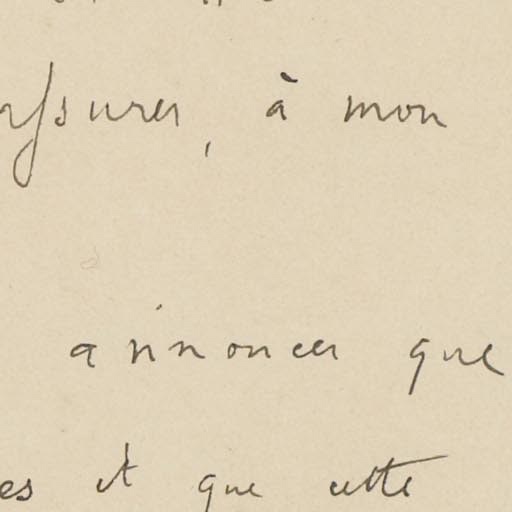 assurer, à mon
annoncer que
es et que cette